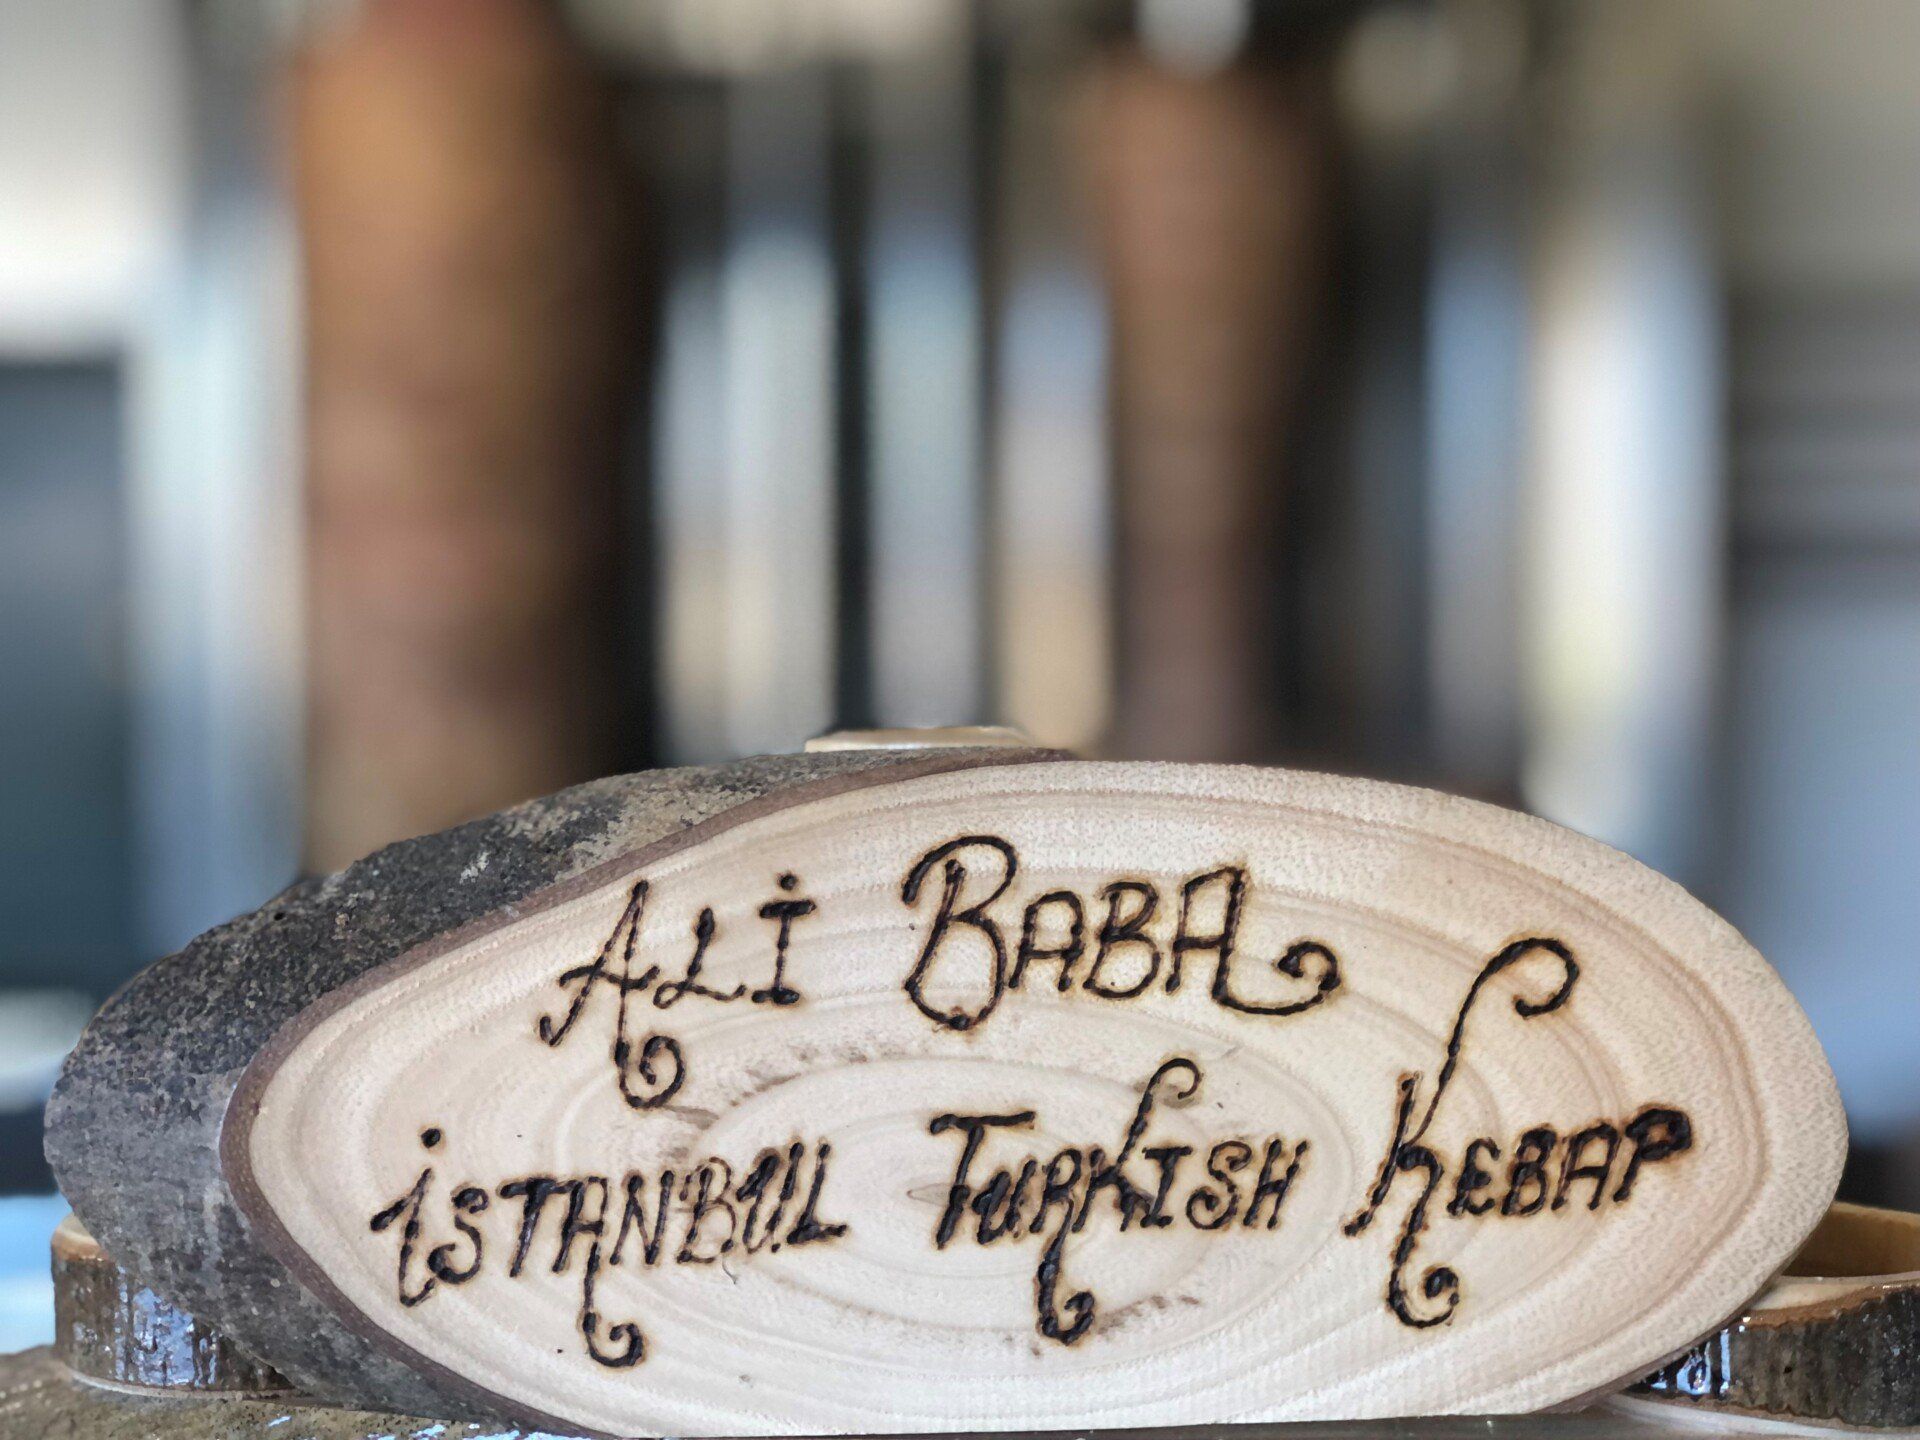 ALİ BABA
İSTANBUL TURKISH KEBAP